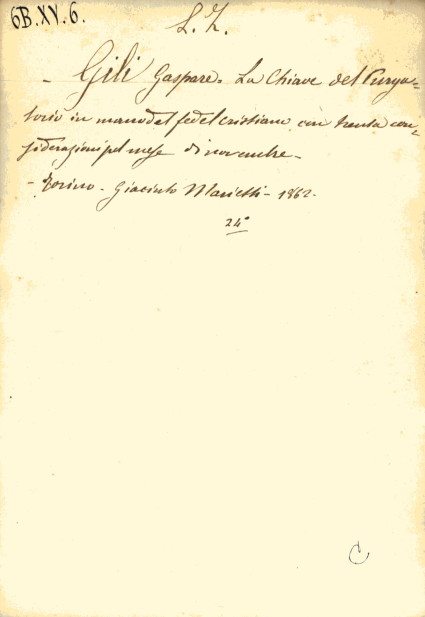 6B.XV.6.
L. Z.
- Gili Gaspare. La Chiave del Purga=
torio in mano del fedel cristiano con trenta con=
siderazioni pel mese di novembre -
- Torino - Giacinto Marietti - 1862.
24°
C